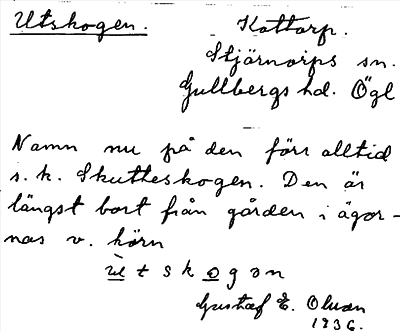 Utskogen. Kottorp.
Stjärnorps sn.
Gullbergs hd. Ögl
Namn nu på den förr alltid
s. k. Skutteskogen. Den är
längst bort från gården i ägor-
nas v. hörn
ùtskogən
Gustaf E. Olsson
1936.